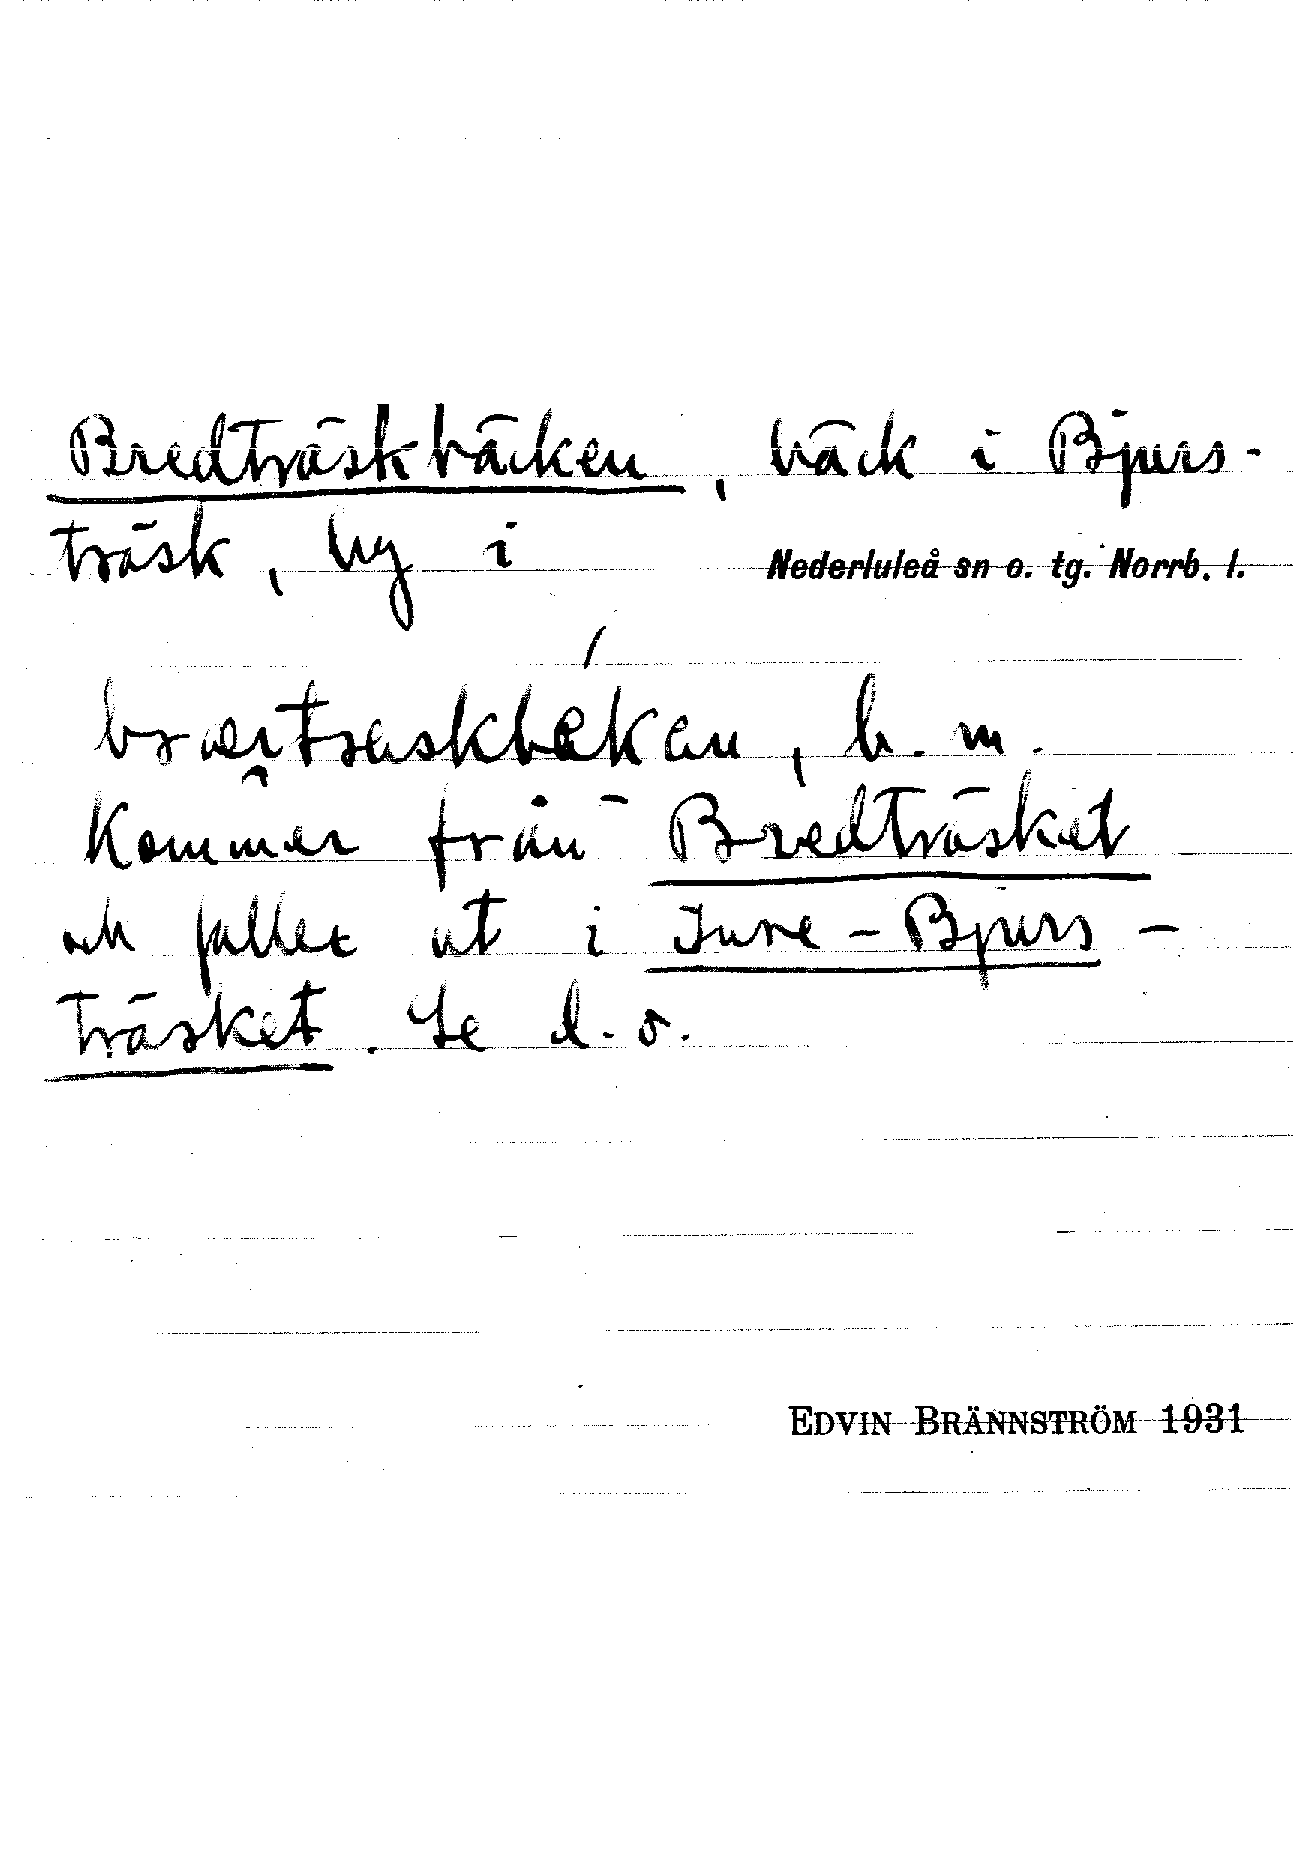 Bredträskbäcken, bäck i Bjurs-
träsk, by i Nederluleå sn o. tg. Norrb. l.
b. m.
Kommer från Bredträsket
och faller ut i Inre-Bjurs-
träsket. Se d. o.
EDVIN BRÄNNSTRÖM 1931